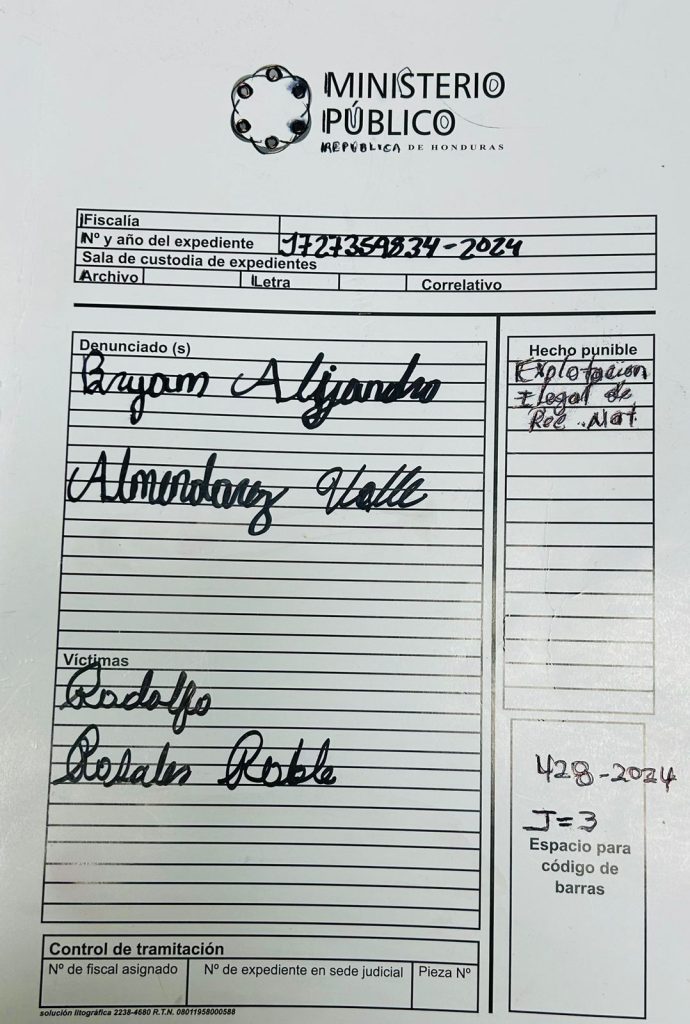 MINISTERIO
PÚBLICO
REPÚBLICA DE HONDURAS
Fiscalía
Nº y año del expediente 1727359834-2024
Sala de custodia de expedientes
Archivo Letra Correlativo
Denunciado (s)
Bryam Alejjandro
Almendarez Valle
Víctimas
Rodolfo
Rosales Roble
Hecho punible
Explotacion
Ilegal de
Rec. Nat.
428-2024
J=3
Espacio para
código de
barras
Control de tramitación
Nº de fiscal asignado Nº de expediente en sede judicial Pieza Nº
solución litográfica 2238-4680 R.T.N. 08011958000588